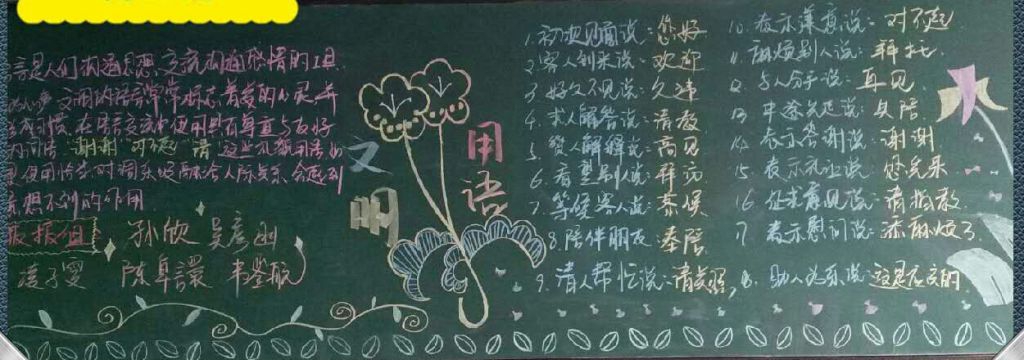 言是人们沟通思想、交流沟通感情的工具
文明的语言常常标志着美的心灵
在语言交流中使用具有尊重与友好
的词语"谢谢""对不起""请"这些礼貌用语
使用恰当对调和人际关系会起到
意想不到的作用
板报组 孙欣
陈卓
文明
用语
1.初次见面说:您好
2.客人到来说:欢迎
3.好久不见说:久违
4.求人解答说:请教
5.赞人解释说:高见
6.看望别人说:拜访
7.等候客人说:恭候
8.陪伴朋友:奉陪
9.请人帮忙说:请关照,
10.表示歉意说:对不起
11.麻烦别人说:拜托
12.与人分手说:再见
13.中途先走说:失陪
14.表示答谢说:谢谢
15.表示礼让说:您先来
16.征求意见说:请指教
17.表示慰问说:添麻烦了
18.助人为乐说:这是应该的